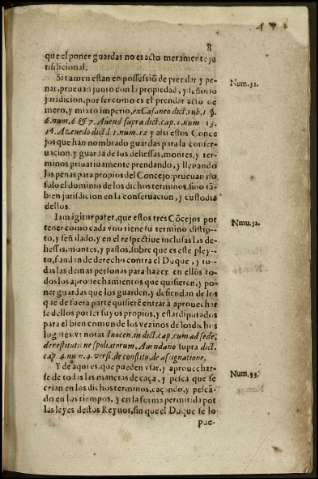 8
que el poner guardas no es acto meramente ju
risdicional.
Si tamen estan en possessiõ de prendar y pe-
nar, prueuan junto con la propiedad, y l.
jurisdicion, por ser como es el prendar acto de
mero, y mixto imperio, ex Casaneo dict. rub. 1. §.
4. num. 6. & 7. Auend. supra dict. cap. 1. num. 13.
14. Azeuedo dict. l. 1. num. 12. y assi estos Conce
jos que han nombrado guardas para la conser-
uacion, y guarda de los dehessas, montes, y ter-
minos priuatiuamente prendando, y lleuando
las penas para propios del Concejo: prueuan no
solo el dominio de los dichos terminos, sino tã-
bien jurisdicion en la conseruacion, y custodia
dellos.
Iam igitur patet, que estos tres Cõcejos por
tener como cada vno tiene su termino distin-
to, y señalado, y en el respectiue inclusas las de-
hessas, montes, y pastos, sobre que es este pley-
to, fundan de derecho contra el Duque, y to-
das las demas personas para hazer en ellos to-
dos los aprouechamientos que quisieren, y po-
ner guardas que los guarden, y defiendan de los
que de fuera parte quisierẽ entrar à aprouechar
se dellos por ser suyos propios, y estar diputados
para el bien comun de los vezinos de los dichos
lugares: vt notat Innocen. in dict. cap. cum ad sede,
de restitutione spoliatorum, Auendaño supra dict.
cap. 4. num. 4. versi. de consueto, de assignatione,
Y de aqui es, que pueden vsar, y aprouechar-
se de todas las maneras de caça, y pesca que se
crian en los dichos terminos, caçando, y pescã-
do en los tiempos, y en la forma permitida por
las leyes destos Reynos, sin que el Duque se lo
pue-
Num. 31.
Num. 32.
Num. 33.